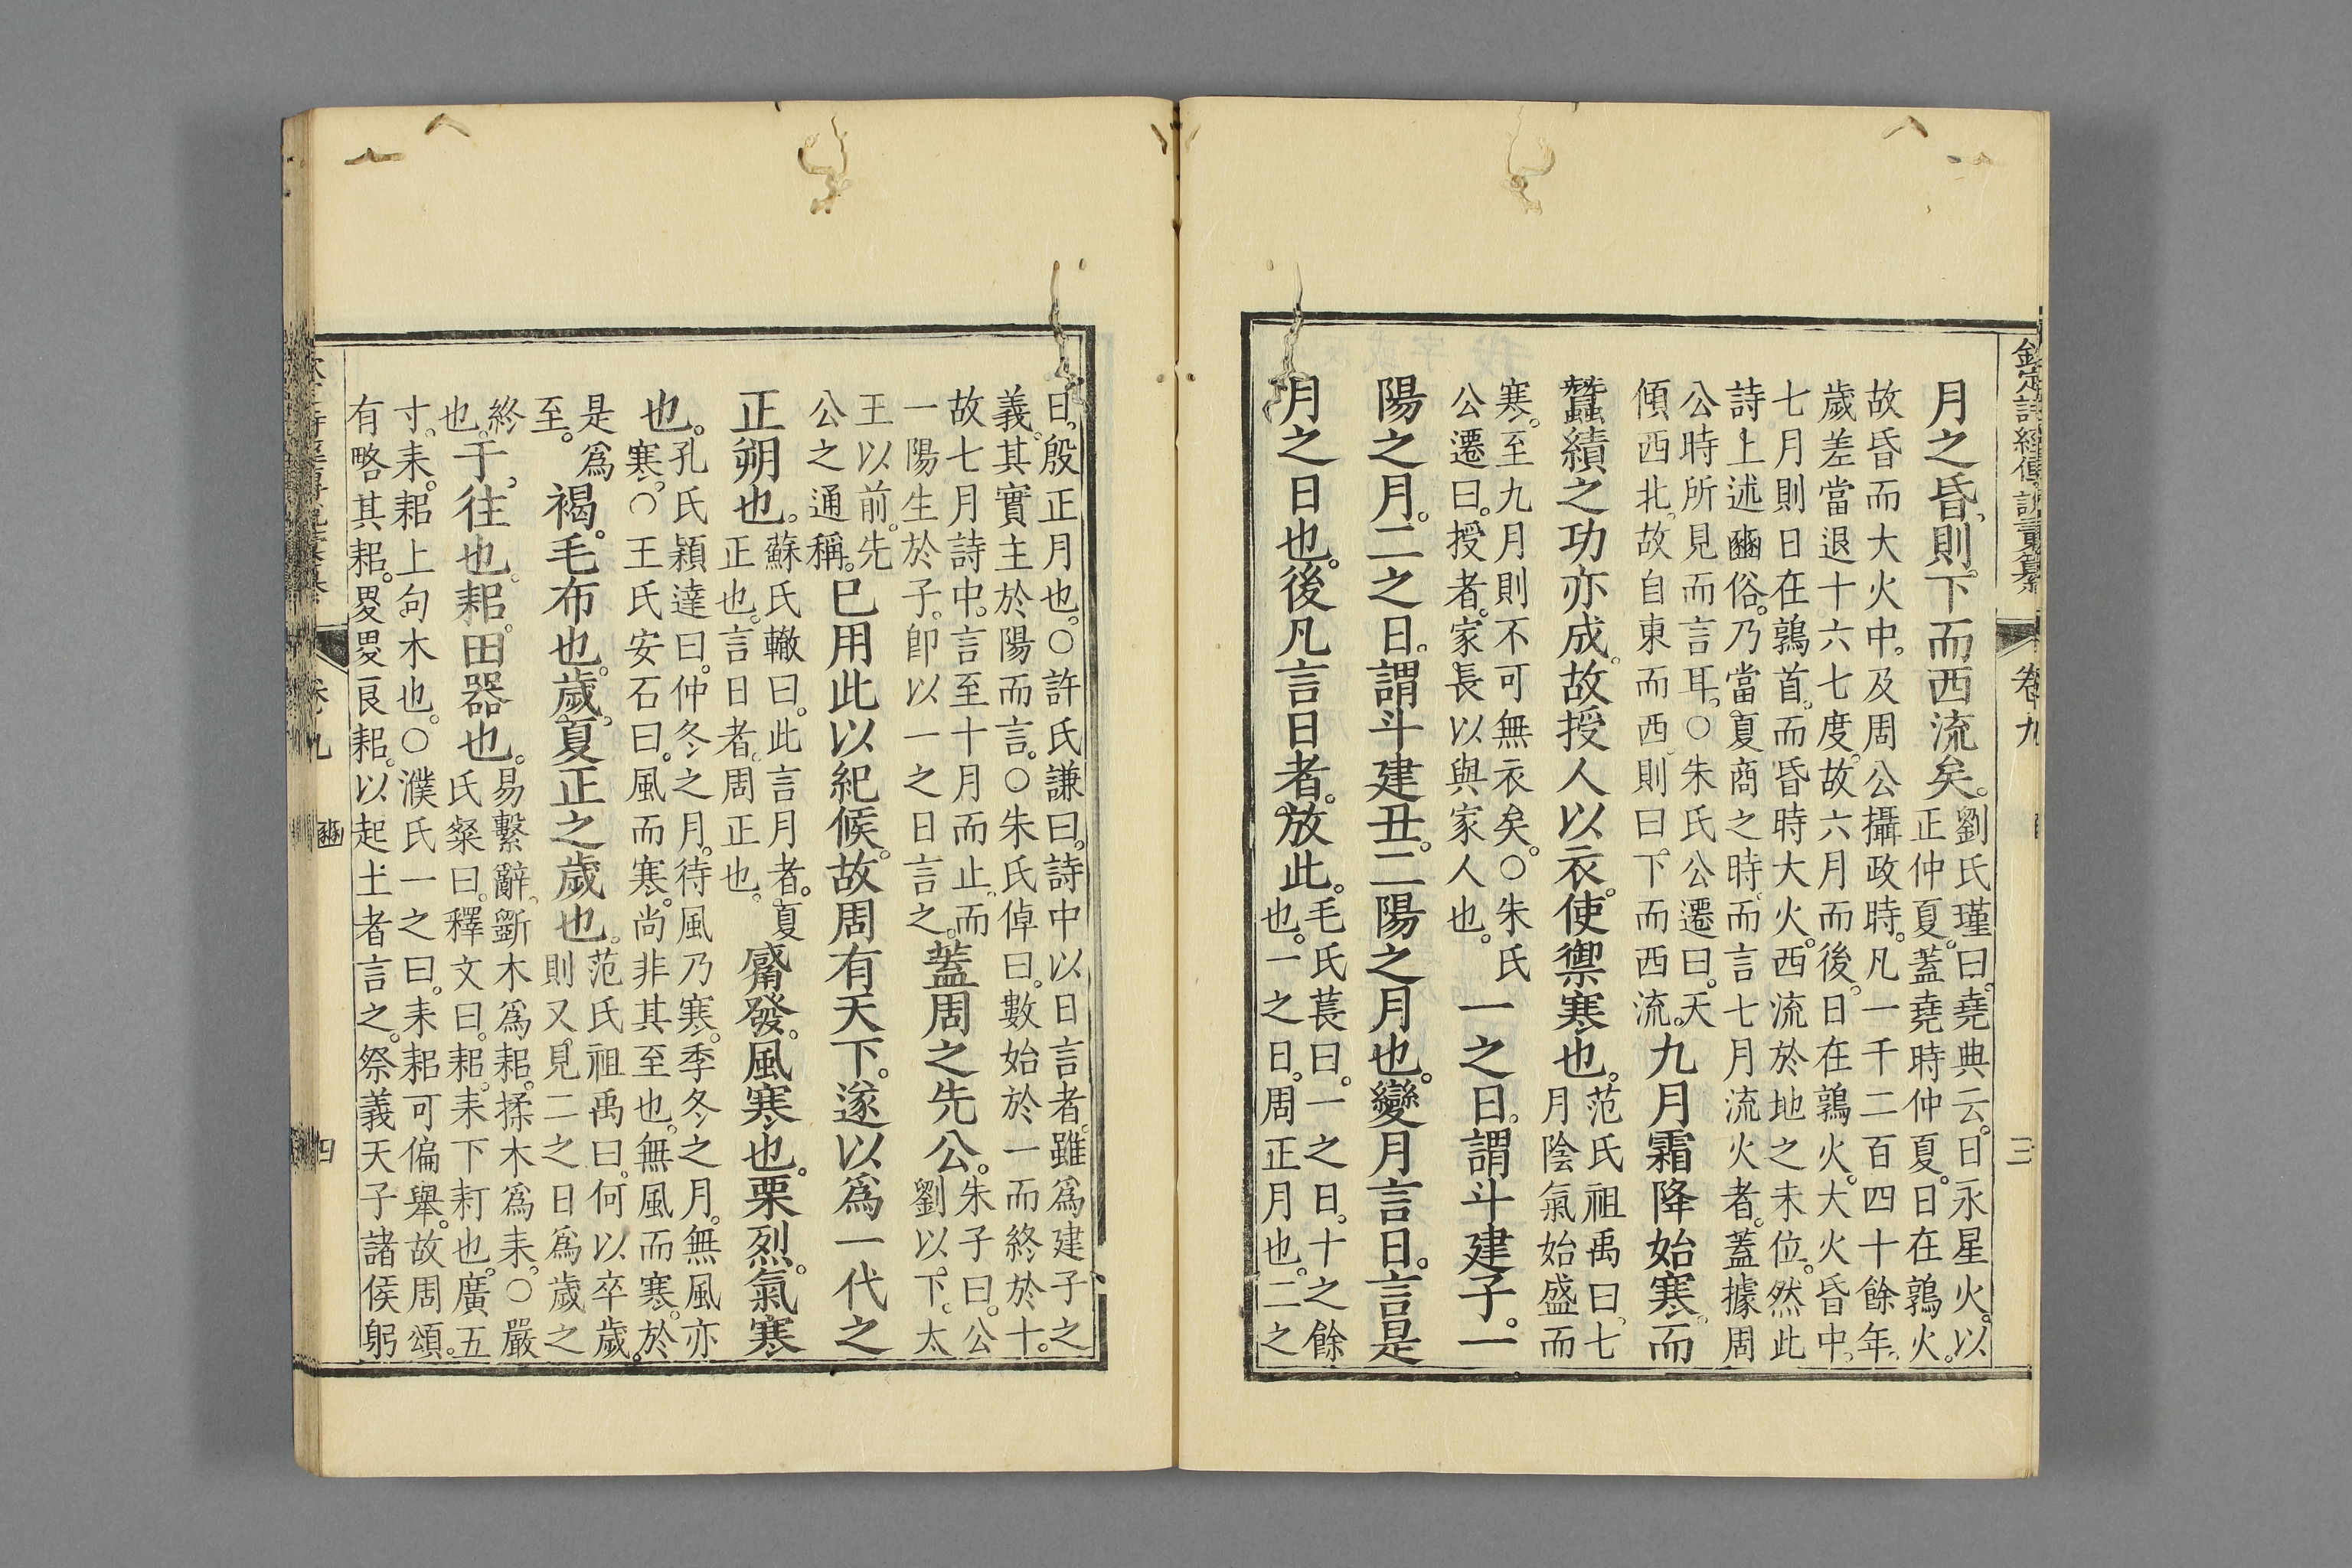 欽定詩經傳說彙纂　卷九　三
月之昏則下而西流矣。劉氏瑾曰。堯典云。日永星火。以
正仲夏。蓋堯時仲夏。日在鶉火。
故昏而大火中。及周公攝政時。凡一千二百四十餘年。
歲差當退十六七度。故六月而後。日在鶉火。大火昏中。
七月則日在鶉首。而昏時大火。西流於地之未位。然此
詩。上述豳俗。乃當夏商之時。而言七月流火者。蓋據周
公時所見而言耳。○朱氏公遷曰。天
傾西北。故自東而西。則曰下而西流。九月霜降始寒。而
蠶績之功亦成。故授人以衣。使禦寒也。范氏祖禹曰。七
月陰氣始盛而
寒。至九月則不可無衣矣。○朱氏
公遷曰。授者。家長以與家人也。一之日。謂斗建子。一
陽之月。二之日。謂斗建丑。二陽之月也。變月言日。言是
月之日也。後凡言日者。放此。毛氏萇曰。一之日。十之餘
也。一之日。周正月也。二之
日。殷正月也。○許氏謙曰。詩中以日言者。雖爲建子之
義。其實主於陽而言。○朱氏倬曰。數始於一而終於十。
故七月詩中。言至十月而止。而
一陽生於子。卽以一之日言之。蓋周之先公。朱子曰。公
劉以下。太
王以前。先
公之通稱。已用此以紀候。故周有天下。遂以爲一代之
正朔也。蘇氏轍曰。此言月者。夏
正也。言日者。周正也。觱發。風寒也。栗烈。氣寒
也。孔氏穎達曰。仲冬之月。待風乃寒。季冬之月。無風亦
寒。○王氏安石曰。風而寒。尚非其至也。無風而寒。於
是爲
至。褐。毛布也。歲。夏正之歲也。范氏祖禹曰。何以卒歲。
則又見二之日爲歲之
終
也。于。往也。耜。田器也。易繫辭。斵木爲耜。揉木爲耒。○嚴
氏粲曰。釋文曰。耜。耒下耓也。廣五
寸。耒。耜上句木也。○濮氏一之曰。耒耜可偏舉。故周頌。
有略其耜。畟畟良耜。以起土者言之。祭義天子諸侯躬
卷九　豳　四